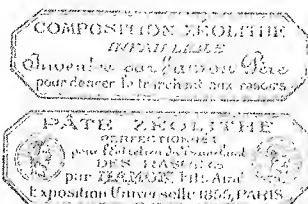 COMPOSITION ZÉOLITHE
INFAILLIBLE
Inventée par Hamon Père
pour donner le tranchant aux rasoirs
PÂTE ZÉOLITHE
PERFECTIONNÉE
pour l'affilage
DES RASOIRS
par HAMON Fils Ainé
Exposition Universelle 1855, PARIS